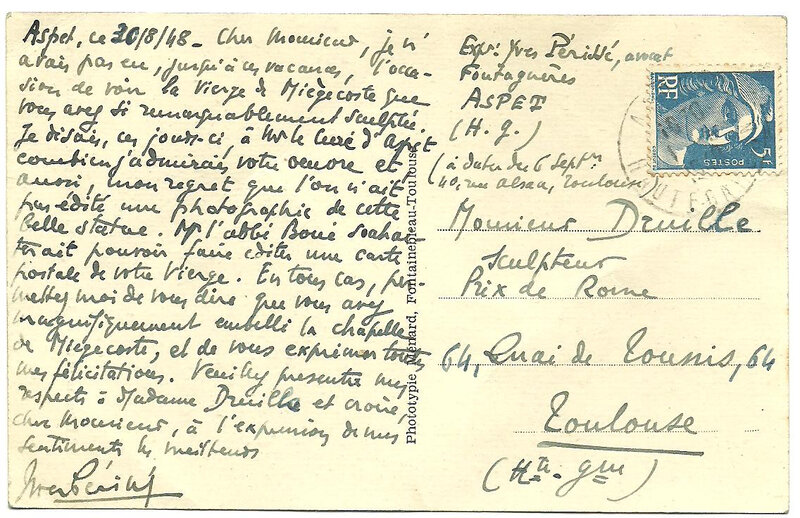 Aspet, ce 30/8/48 - Cher Monsieur, je n'
avais pas eu, jusqu'à ces vacances, l'occa-
sion de voir la Vierge de Miègecoste que
vous avez si remarquablement sculptée.
Je disais, ces jours-ci, à Mr le Curé d'Aspet
combien j'admirais votre oeuvre et
aussi, mon regret que l'on n'ait
pas édité une photographie de cette
belle statue. Mr l'abbé Boué souhai-
terait pouvoir faire éditer une carte
postale de votre Vierge. En tous cas, per-
mettez moi de vous dire que vous avez
magnifiquement embelli la chapelle
de Miègecoste, et de vous exprimer toutes
mes félicitations. Veuillez présenter mes
respects à Madame Druille et croire,
cher Monsieur, à l'expression de mes
sentiments les meilleurs
Yves Périssé
Phototypie Ménard, Fontainebleau-Toulouse
Expr: Yves Périssé, avocat
Fontagnères
ASPET
(H. G.)
(à dater du 6 Septbre
40, rue alsace, Toulouse
RF
5F
POSTES
Monsieur Druille
Sculpteur
Prix de Rome
64, Quai de Tounis, 64
Toulouse
(Hte. Gne)